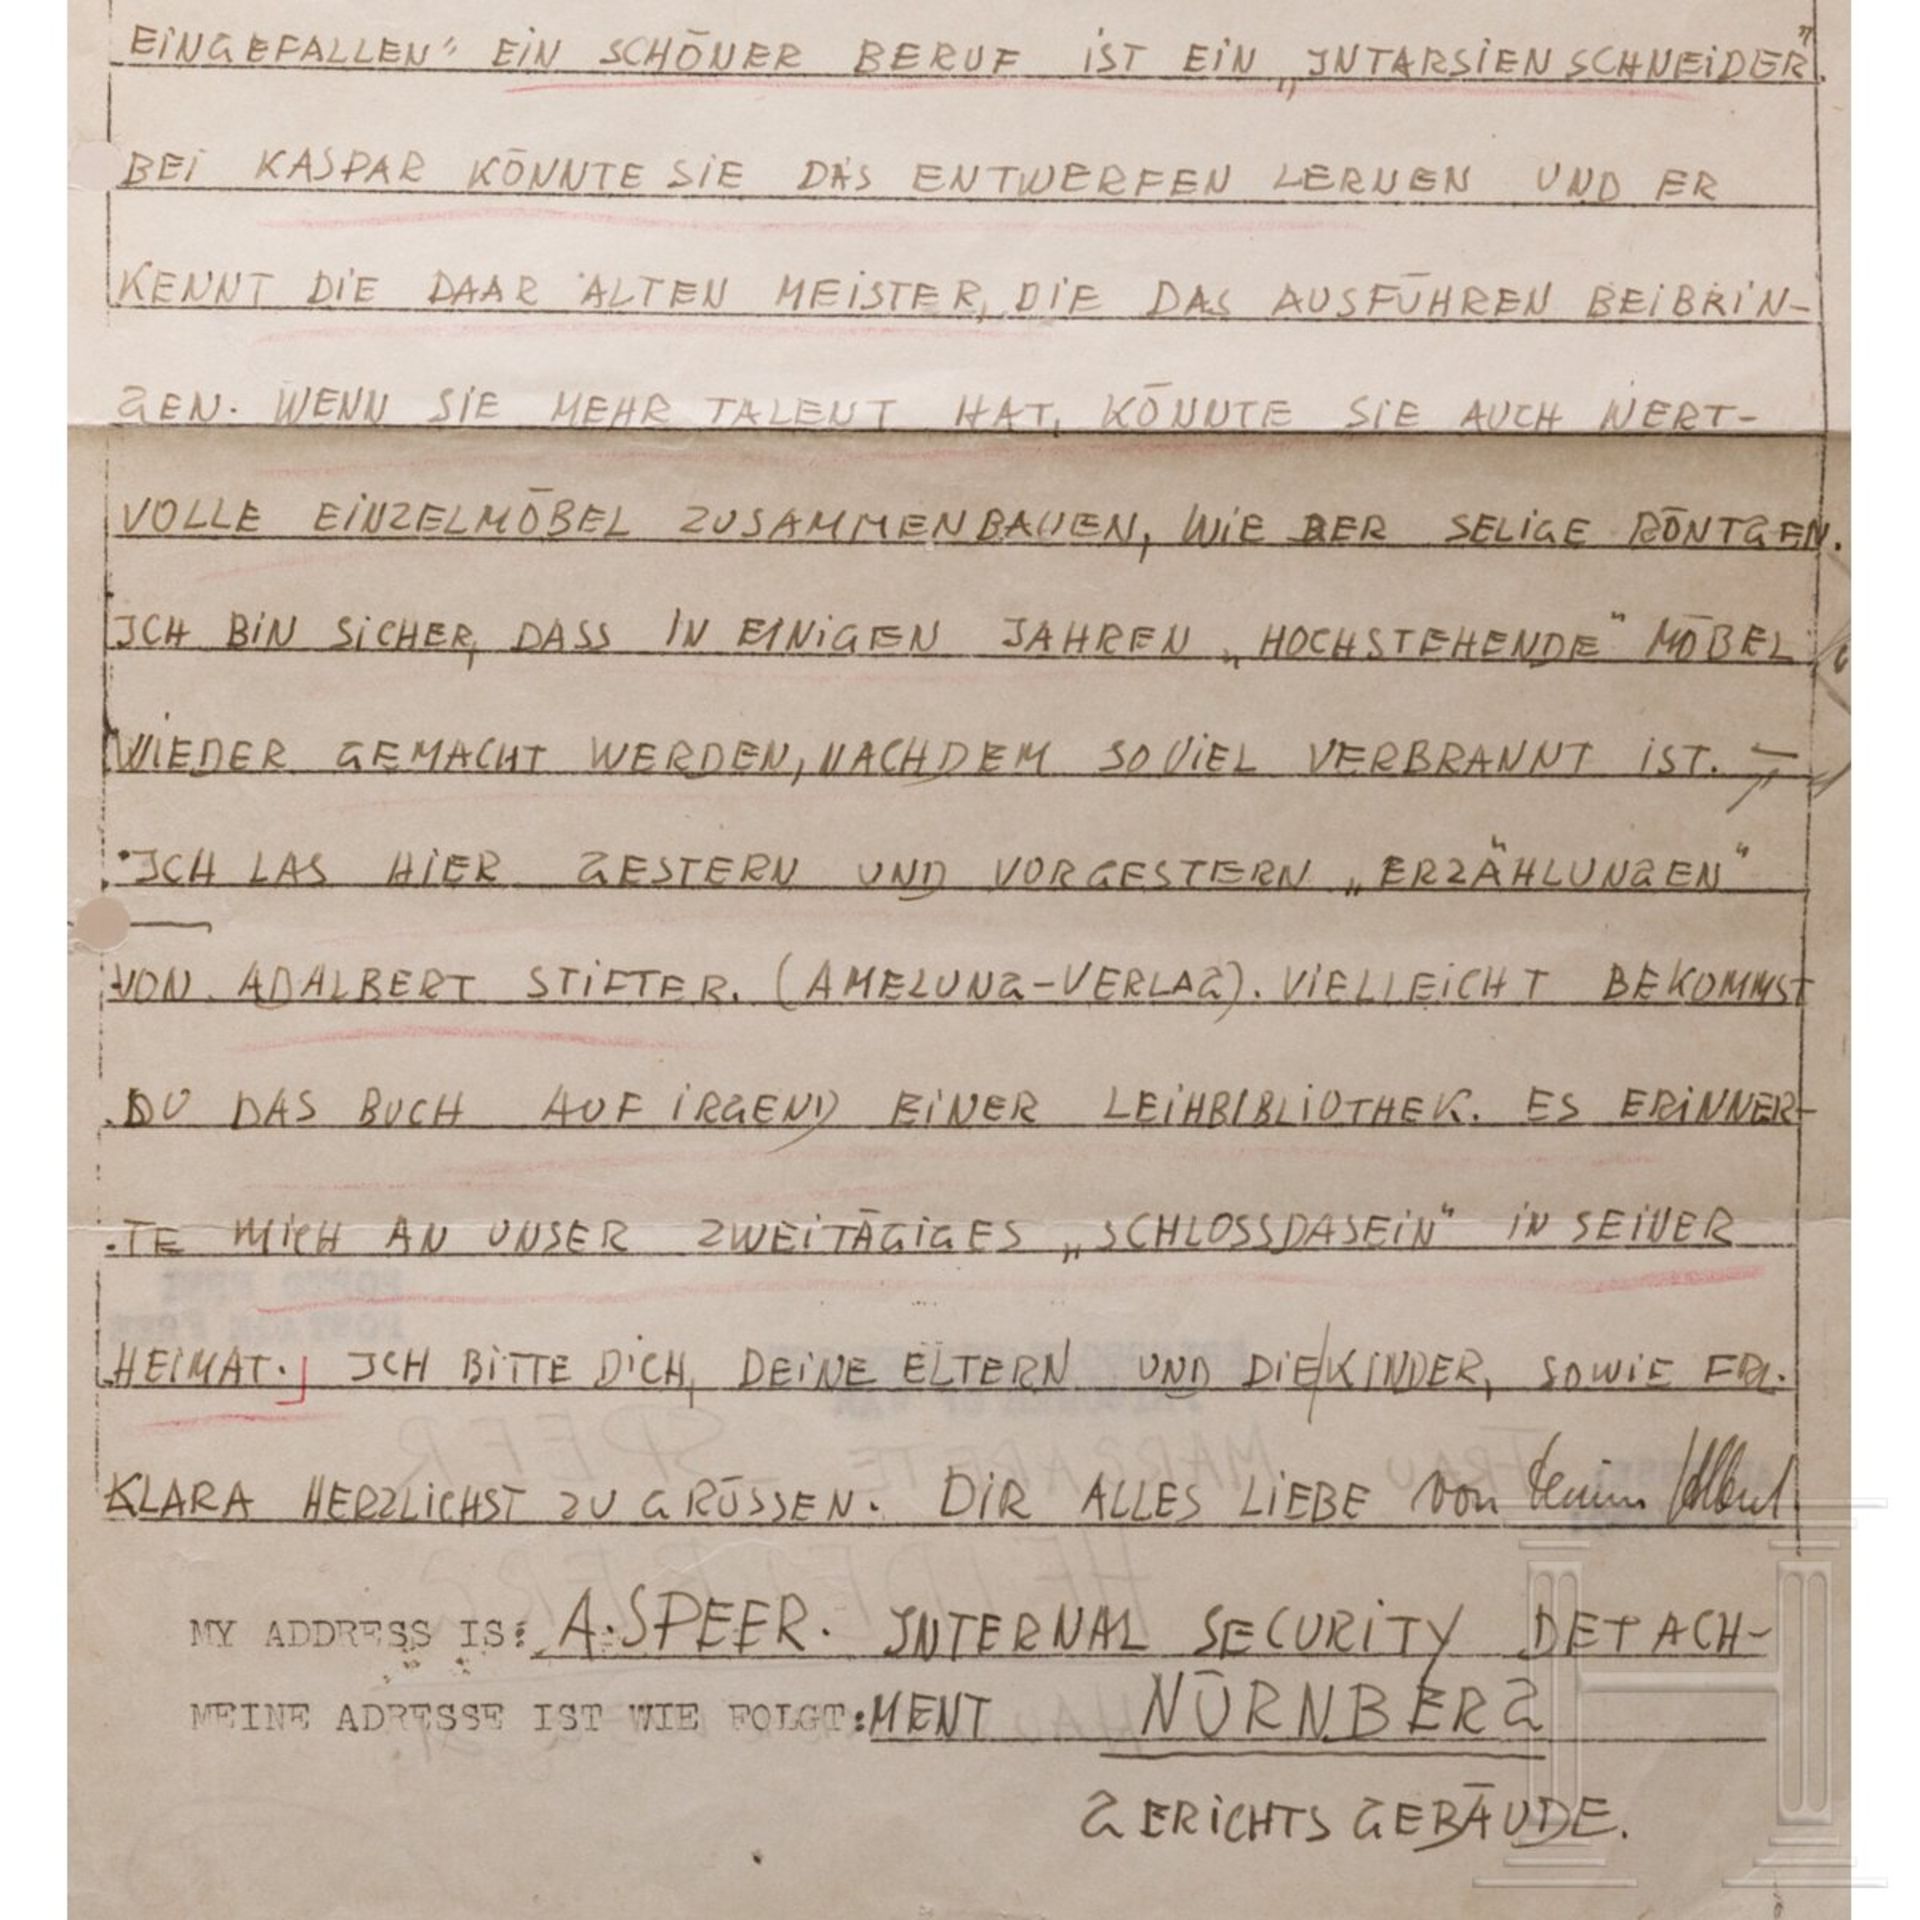 EINGEFALLEN" EIN SCHÖNER BERUF IST EIN „INTARSIENSCHNEIDER".
BEI KASPAR KÖNNTE SIE DAS ENTWERFEN LERNEN UND ER
KENNT DIE DAAR ALTEN MEISTER, DIE DAS AUSFÜHREN BEIBRIN-
GEN. WENN SIE MEHR TALENT HAT, KÖNNTE SIE AUCH WERT-
VOLLE EINZELMÖBEL ZUSAMMENBAUEN, WIE DER SELIGE RÖNTGEN.
ICH BIN SICHER, DASS IN EINIGEN JAHREN „HOCHSTEHENDE" MÖBEL
WIEDER GEMACHT WERDEN, NACHDEM SOVIEL VERBRANNT IST. –
ICH LAS HIER GESTERN UND VORGESTERN „ERZÄHLUNGEN"
VON ADALBERT STIFTER. (AMELUNG-VERLAG). VIELLEICHT BEKOMMST
DU DAS BUCH AUF IRGEND EINER LEIHBIBLIOTHEK. ES ERINNER-
TE MICH AN UNSER ZWEITÄGIGES „SCHLOSSDASEIN" IN SEINER
HEIMAT. ICH BITTE DICH, DEINE ELTERN UND DIE KINDER, SOWIE FRL.
KLARA HERZLICHST ZU GRÜSSEN. DIR ALLES LIEBE von Deinem Albert
MY ADDRESS IS: A. SPEER. INTERNAL SECURITY DETACH-
MEINE ADRESSE IST WIE FOLGT: MENT NÜRNBERG
GERICHTSGEBÄUDE.